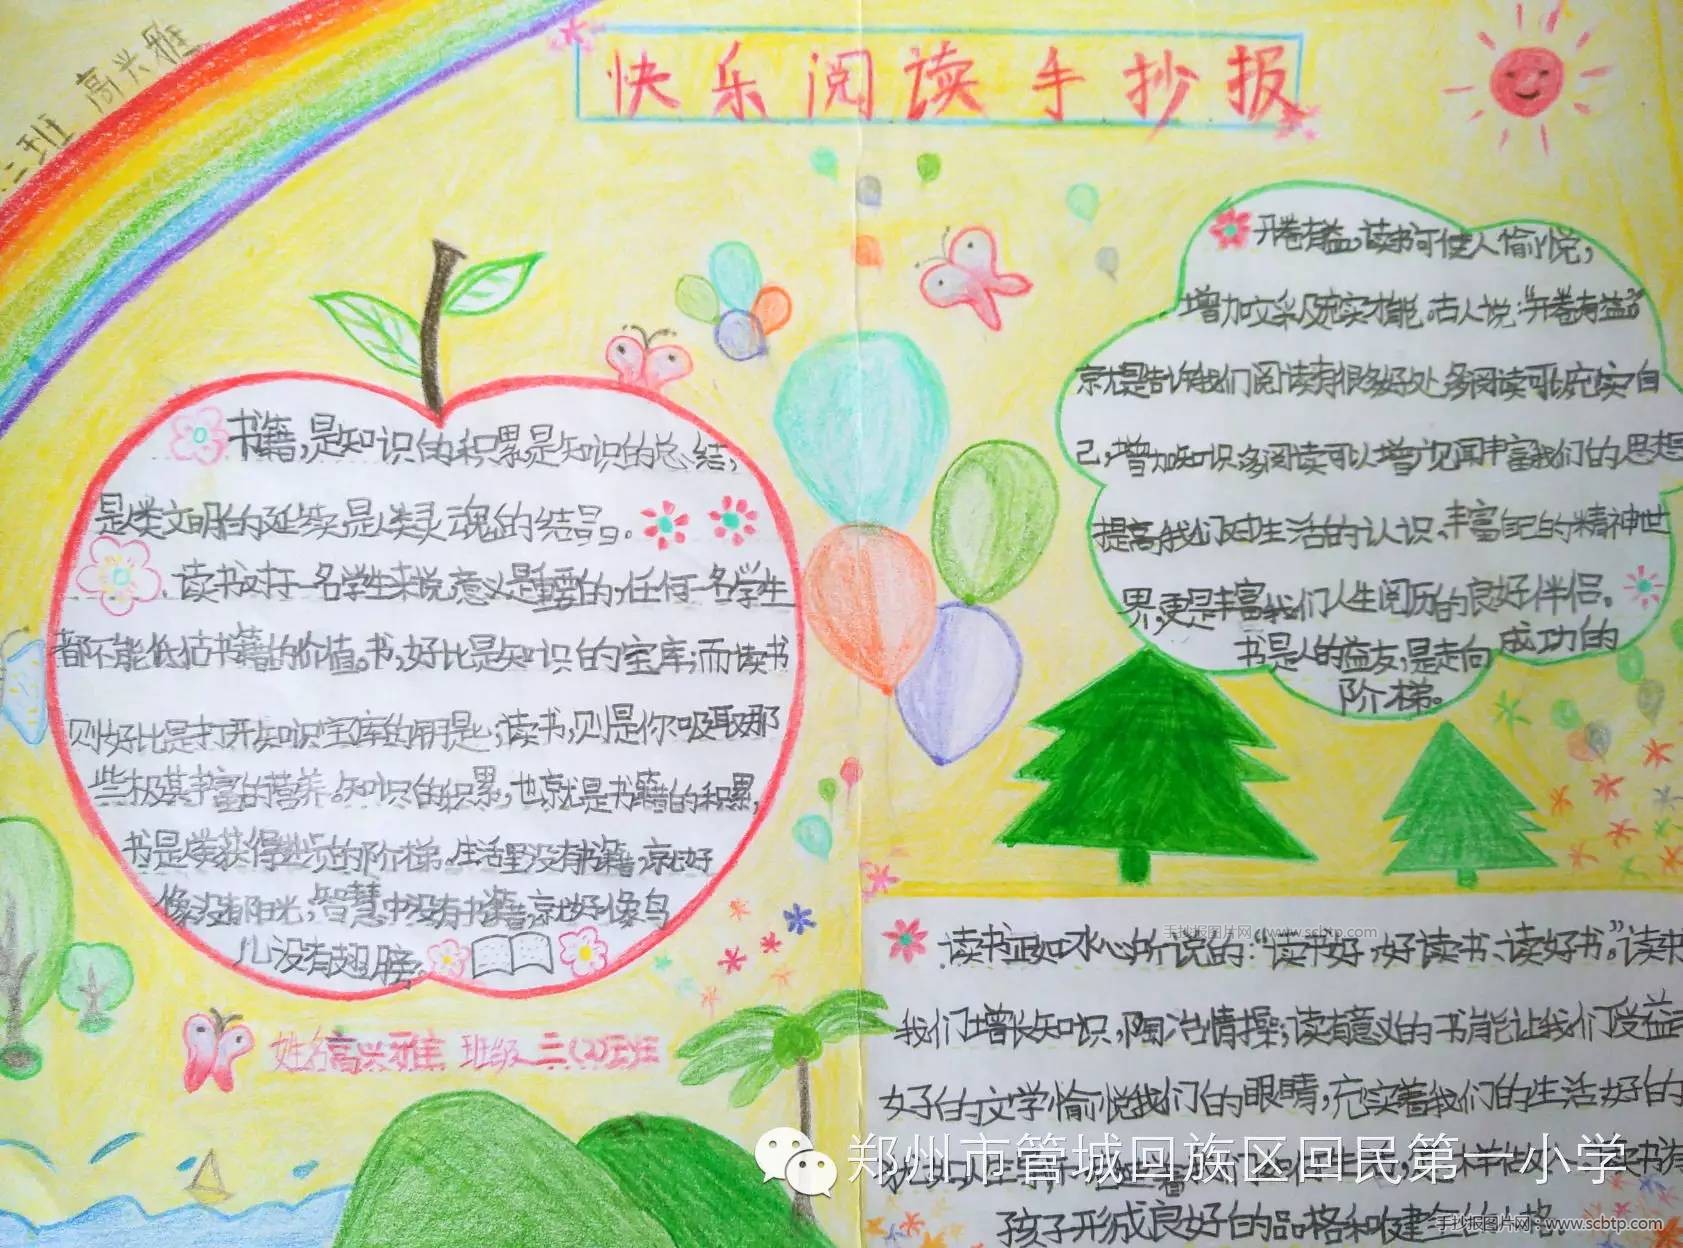 快乐阅读手抄报
二班 高兴雅
书籍,是知识的积累,是知识的总结,
是人类文明的延续,是人类灵魂的结晶。
读书对于一名学生来说,意义是重要的,任何一名学生
都不能低估书籍的价值。书,好比是知识的宝库;而读书
则好比是打开知识宝库的钥匙;读书,则是你吸取那
些极其丰富的营养。知识的积累,也就是书籍的积累,
书是人类获得进步的阶梯。生活里没有书籍,就好
像没有阳光,智慧中没有书籍,就好像鸟
儿没有翅膀。
姓名高兴雅 班级三(2)班
开卷有益,读书可使人愉悦,
增加文采及充实才能。古人说:“开卷有益”
就是告诉我们阅读有很多好处,多阅读可以充实自
己,增加知识,多阅读可以增广见闻丰富我们的思想
提高我们对生活的认识,丰富自己的精神世
界,更是丰富我们人生阅历的良好伴侣。
书是人的益友,是走向成功的
阶梯。
手抄报图片网:www.scbtp.com
读书正如冰心所说的:“读书好,好读书、读好书。”读书
我们增长知识,陶冶情操;读有意义的书能让我们受益
好的文学愉悦我们的眼睛,充实着我们的生活好的
郑州市管城回族区回民第一小学
孩子形成良好的品格和健全的人格。
手抄报图片网:www.scbtp.com